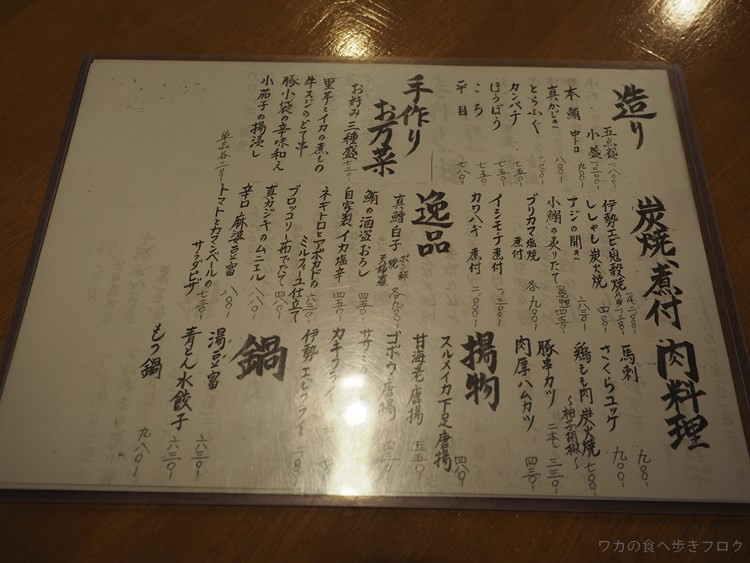 造り
五点盛 一八〇〇-
小盛 一三〇〇-
本鮪 中トロ 九八〇-
真かじき 八〇〇-
とらふぐ
カンパチ 七五〇-
ほうぼう 七五〇-
こち 七五〇-
平目 七八〇-
手作り
お万菜
お好み三種盛 七五〇-
里芋とイカの煮もの
牛スジのどて串
豚小袋の辛味和え
小茄子の揚浸し
単品各三八〇-
炭焼、煮付
伊勢エビ鬼殻焼
ししゃも炭火焼 四八〇-
アジの開き 六三〇-
小鰯の炙りたて
ブリカマ塩焼 煮付 各九〇〇-
イシモチ煮付
カワハギ 煮付 二〇〇〇-
逸品
真鱈白子 ポン酢 焼 天婦羅 各九〇〇-
鮪の酒盗おろし 四五〇-
自家製イカ塩辛 四五〇-
ネギトロとアボカドの
ミルフィーユ仕立て 六三〇-
ブロッコリー茹でたて 四八〇-
真カジキのムニエル 八八〇-
辛口麻婆豆富 八〇〇-
トマトとカマンベールの
サラダピザ 七五〇-
肉料理
馬刺 九八〇-
さくらユッケ 九〇〇-
鶏もも肉炭火焼 七〇〇-
〜柚子胡椒〜
豚串カツ 二本 三三〇-
肉厚ハムカツ 四三〇-
揚物
スルメイカ下足唐揚 四八〇-
甘海老唐揚 五五〇-
ゴボウ唐揚 四三〇-
カキフライ
伊勢エビフライ
鍋
湯豆富 六三〇-
青とん水餃子 六三〇-
もつ鍋 九八〇-
ワカの食べ歩きブログ